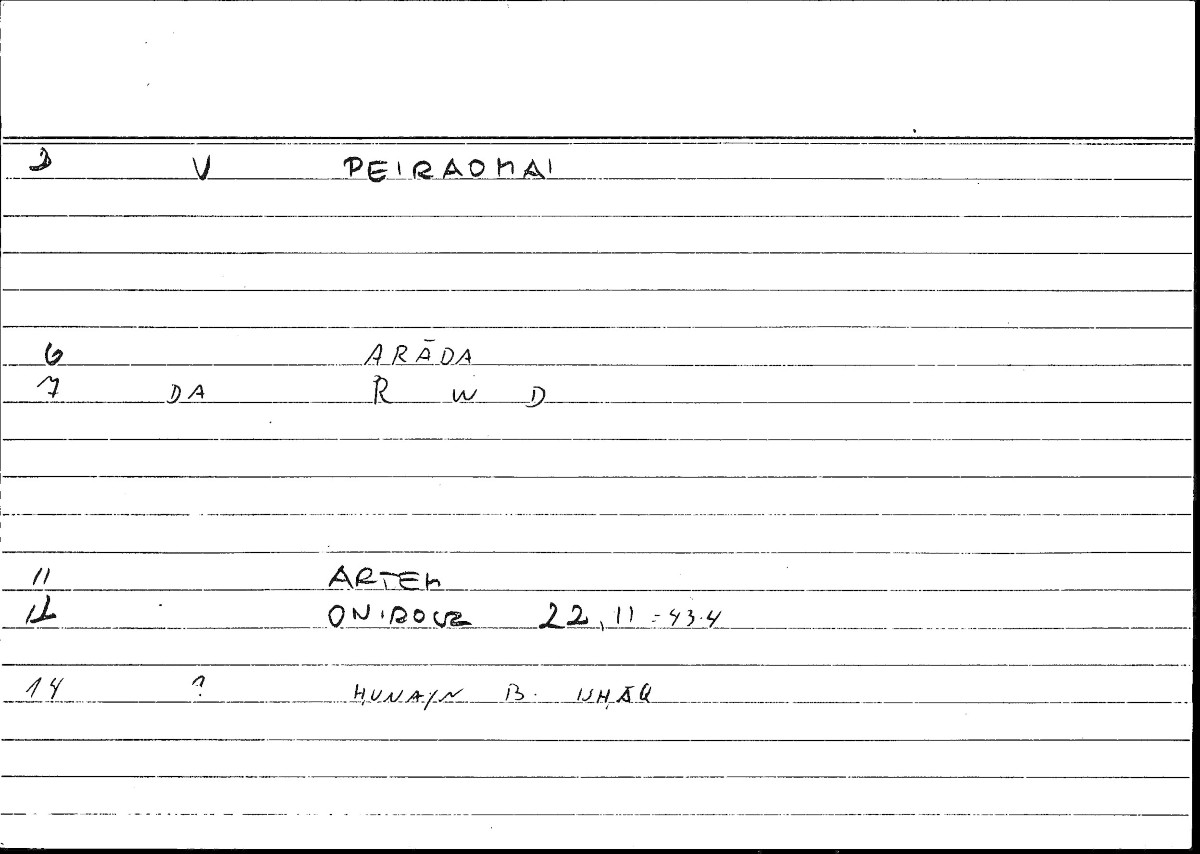 3 V PEIRAOMAI
6 ARĀDA
7 DA R W D
11 ARTEM
12 ONIROCR 22,11 = 43.4
14 ? ḤUNAYN B. ISḤĀQ